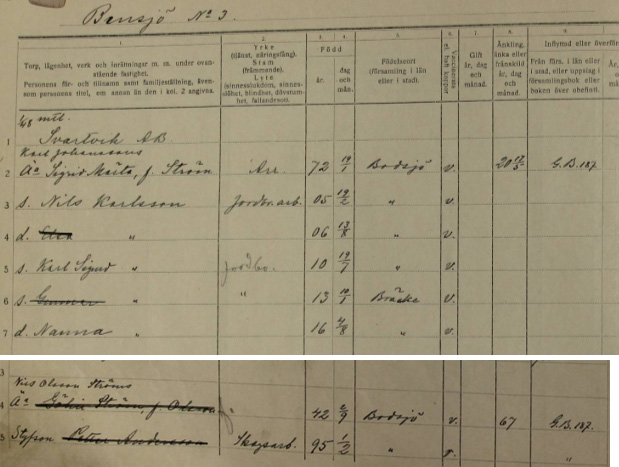 Bensjö No 3.
1. 2. 3. 4. 5. 6. 7. 8. 9.
Torp, lägenhet, verk och inrättningar m. m. under ovanstående fastighet.
Personens för- och tillnamn samt familjeställning, även- som personens titel, om annan än den i kol. 2 angivna.
Yrke
(tjänst, näringsfång).
Stam
(främmande).
Lyte
(sinnessjukdom, sinnesslöhet, blindhet, dövstumhet, fallandesot).
Född
år.
dag och mån.
Födelseort
(församling i län eller i stad).
Gift
år, dag och månad.
Änkling, änka eller frånskild
år, dag och månad.
Inflyttad eller överför
Från förs. i län eller i stad, eller uppslag i församlingsbok eller boken över obefintl.
1/48 mtl.
1 Svartvik AB
Karl Johanssons
2 Äa Sigrid Märta, f. Ström Arr. 72 19/1 Bodsjö v. 20 G.B. 187.
3 s. Nils Karlsson Jordbr.arb. 05 19/2 " v.
4 d. Elsa " 06 13/8 " v.
5 s. Karl Sigurd " Jordbr. 10 19/7 " v.
6 s. Gunnar " " 13 10/1 Bräcke v.
7 d. Nanna " 16 4/8 " v.
3
Nils Olsson Ströms
4 Äa Ström, f. Olsson 42 2/9 Bodsjö v. 67 G.B. 187.
5 Styfson Petter Andersson Skogsarb. 95 1/2 " v. "